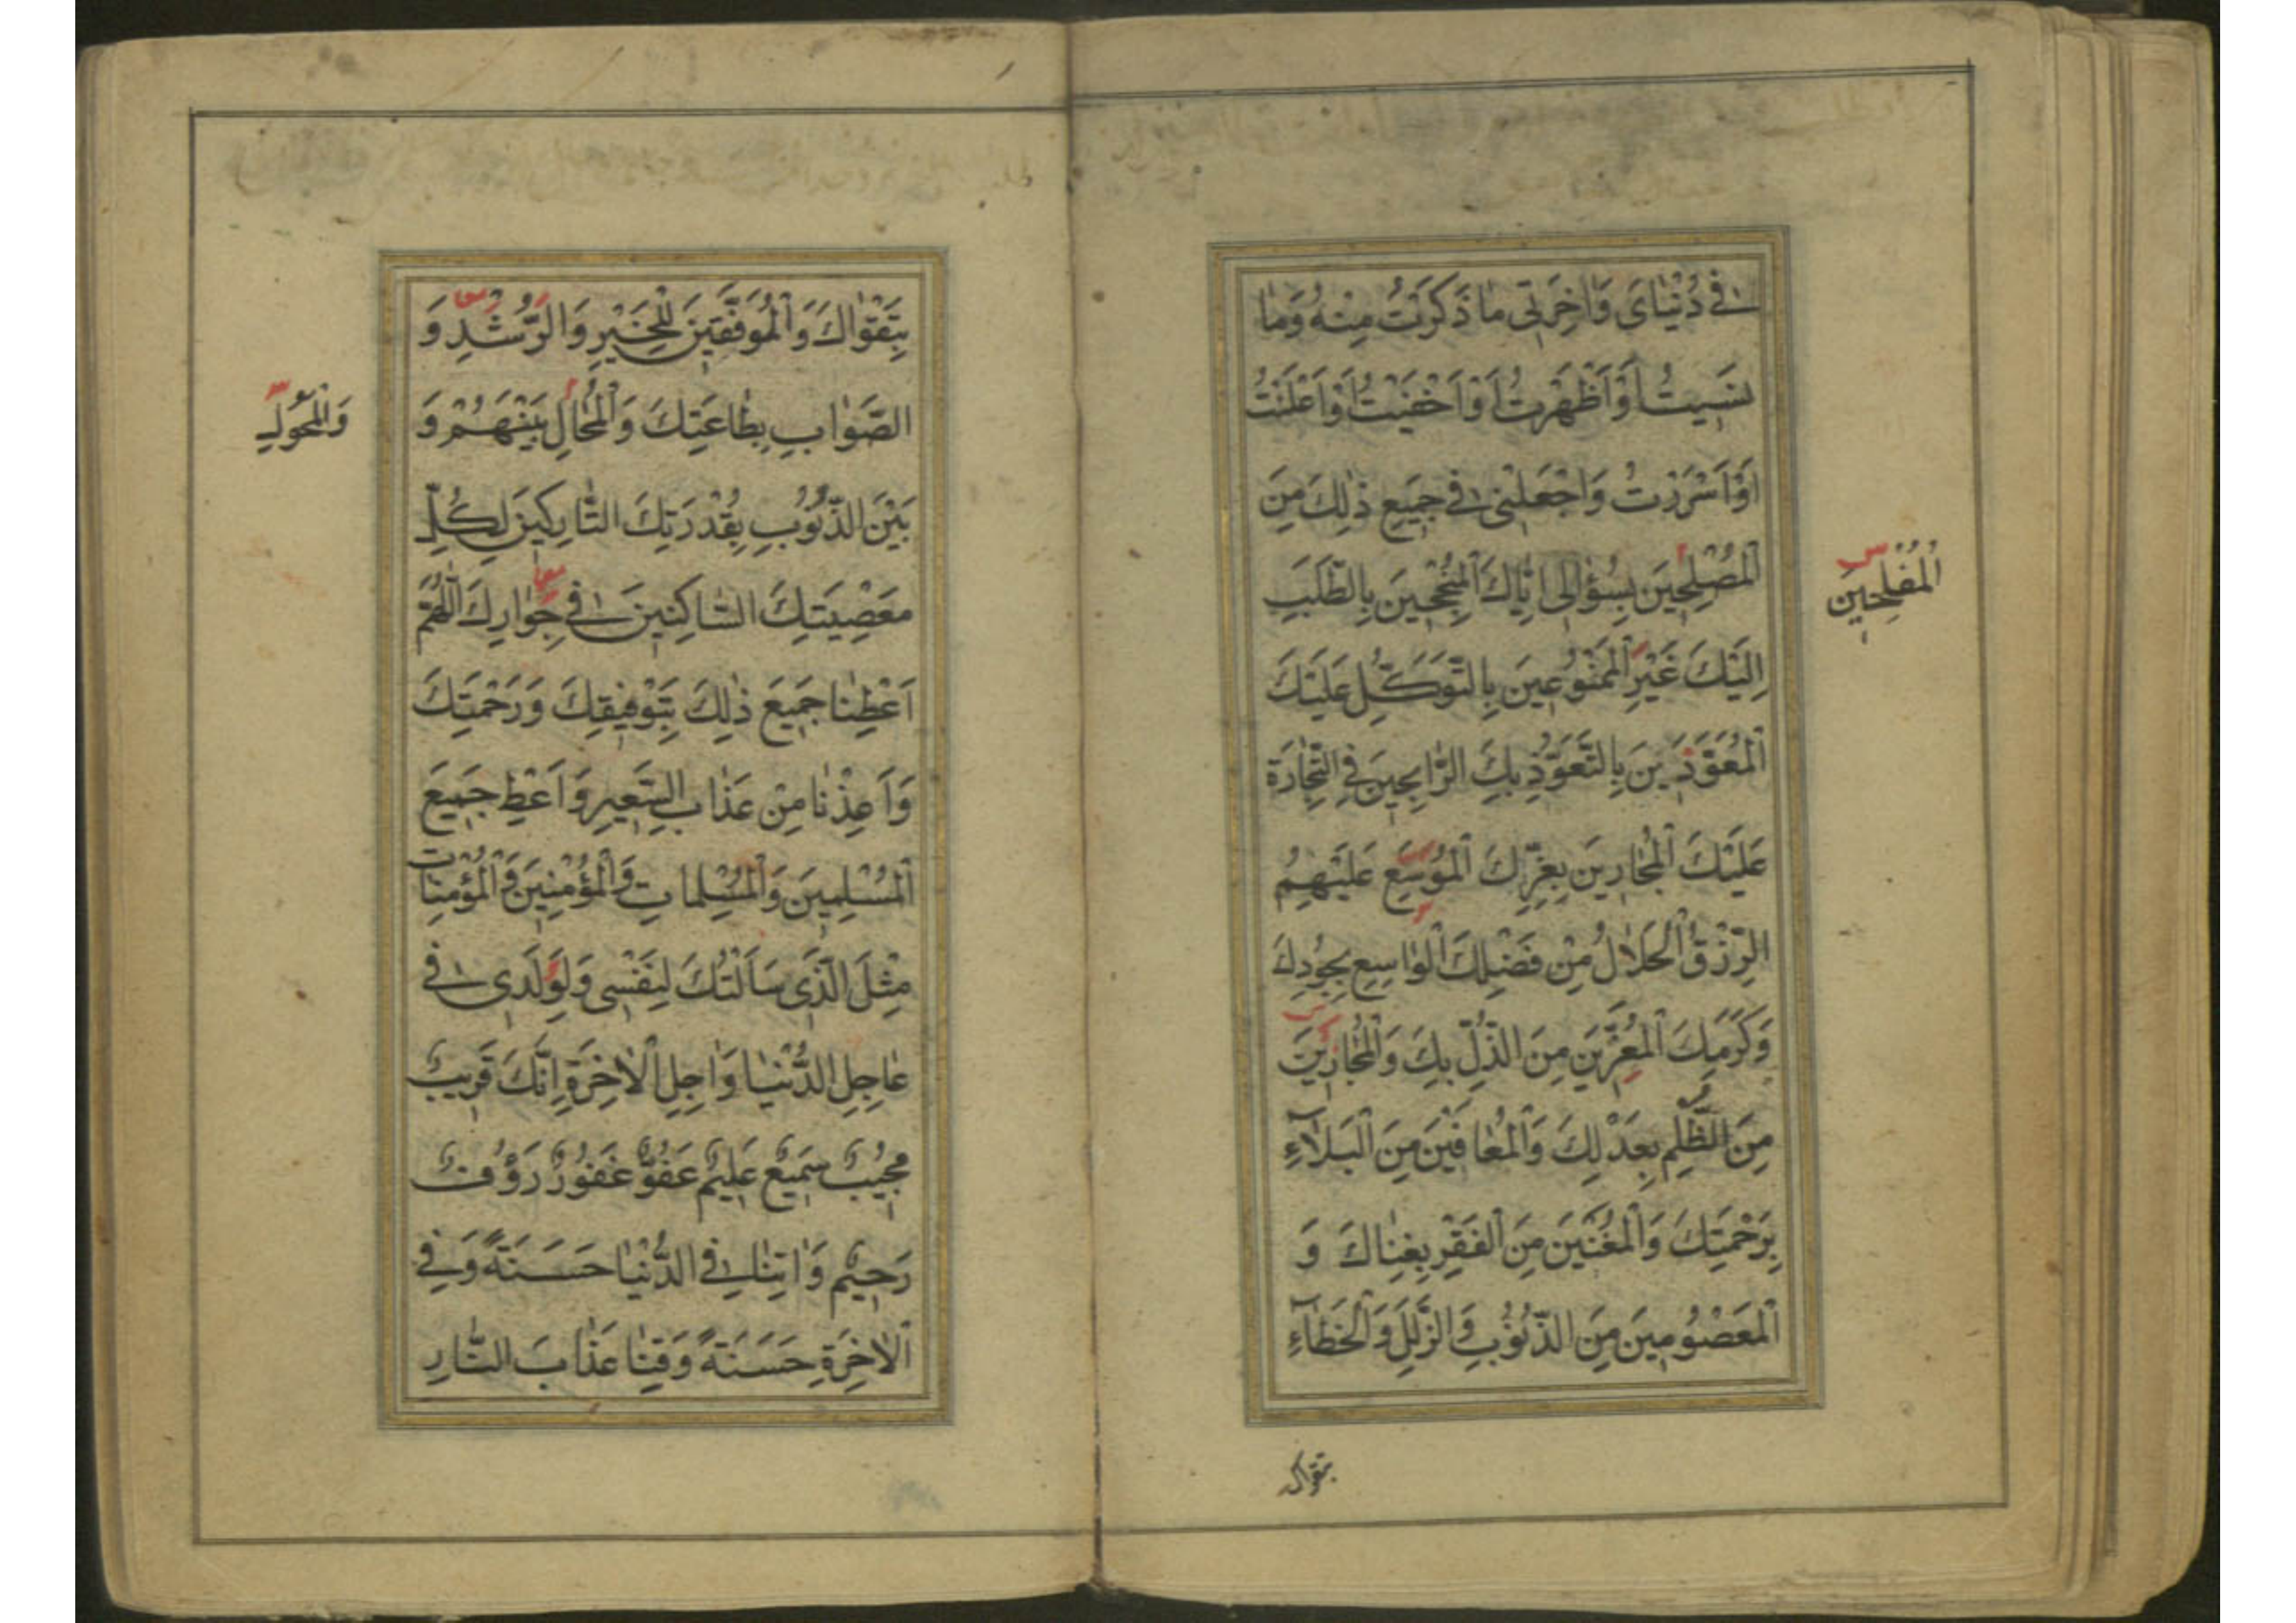 في دُنْيَايَ وَاٰخِرَتِي مَا ذَكَرْتُ مِنْهُ وَمَا
نَسِيتُ اَوْ اَظْهَرْتُ اَوْ اَخْفَيْتُ اَوْ اَعْلَنْتُ
اَوْ اَسْرَرْتُ وَاجْعَلْنِي في جَمِيعِ ذٰلِكَ مِنَ
الْمُصْلِحِينَ بِسُؤَالِي اِيَّاكَ الْمُنْجِحِينَ بِالطَّلَبِ
الْمُفْلِحِينَ
اِلَيْكَ غَيْرِ الْمَمْنُوعِينَ بِالتَّوَكُّلِ عَلَيْكَ
الْمُعَوَّذِينَ بِالتَّعَوُّذِ بِكَ الرَّابِحِينَ فِي التِّجَارَةِ
عَلَيْكَ الْمُجَارِينَ بِعِزِّكَ الْمُوَسَّعِ عَلَيْهِمُ
الرِّزْقُ الْحَلَالُ مِنْ فَضْلِكَ الْوَاسِعِ بِجُودِكَ
وَكَرَمِكَ الْمُعَزِّينَ مِنَ الذُّلِّ بِكَ وَالْمُجَارِينَ
مِنَ الظُّلْمِ بِعَدْلِكَ وَالْمُعَافَيْنَ مِنَ الْبَلَآءِ
بِرَحْمَتِكَ وَالْمُغْنَيْنَ مِنَ الْفَقْرِ بِغِنَاكَ وَ
الْمَعْصُومِينَ مِنَ الذُّنُوبِ وَالزَّلَلِ وَالْخَطَآءِ
بتقواك
بِتَقْوَاكَ وَالْمُوَفَّقِينَ لِلْخَيْرِ وَالرُّشْدِ وَ
الصَّوَابِ بِطَاعَتِكَ وَالْمُحَالِ بَيْنَهُمْ وَ
وَالْمُحَوَّلِ
بَيْنَ الذُّنُوبِ بِقُدْرَتِكَ التَّارِكِينَ لِكُلِّ
مَعْصِيَتِكَ السَّاكِنِينَ في جِوَارِكَ اَللّٰهُمَّ
اَعْطِنَا جَمِيعَ ذٰلِكَ بِتَوْفِيقِكَ وَرَحْمَتِكَ
وَاَعِذْنَا مِنْ عَذَابِ السَّعِيرِ وَاَعْطِ جَمِيعَ
الْمُسْلِمِينَ وَالْمُسْلِمَاتِ وَالْمُؤْمِنِينَ وَالْمُؤْمِنَاتِ
مِثْلَ الَّذِي سَاَلْتُكَ لِنَفْسِي وَلِوَلَدِي في
عَاجِلِ الدُّنْيَا وَاٰجِلِ الْاٰخِرَةِ اِنَّكَ قَرِيبٌ
مُجِيبٌ سَمِيعٌ عَلِيمٌ عَفُوٌّ غَفُورٌ رَؤُوفٌ
رَحِيمٌ وَاٰتِنَا فِي الدُّنْيَا حَسَنَةً وَفِي
الْاٰخِرَةِ حَسَنَةً وَقِنَا عَذَابَ النَّارِ